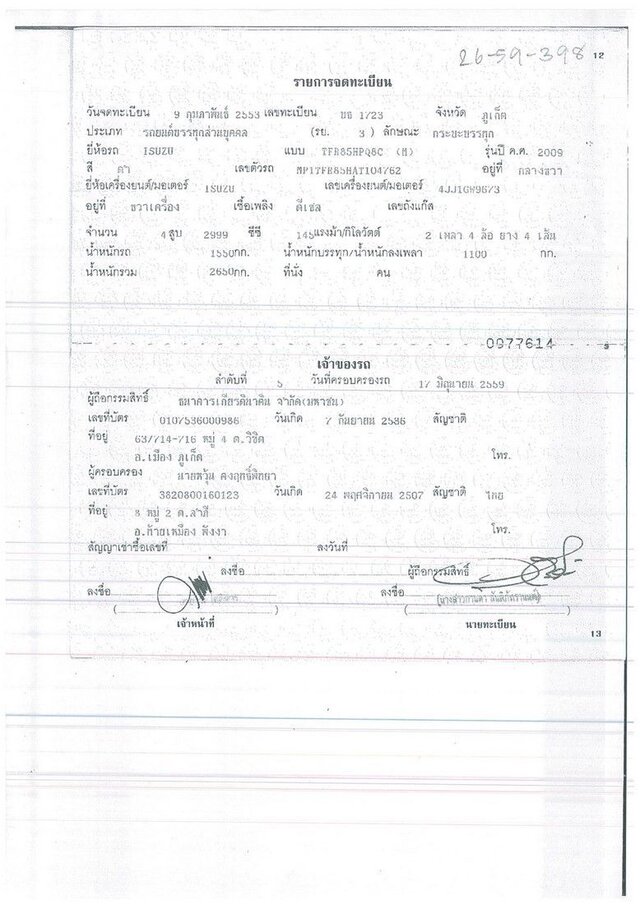 26-59-398 12
รายการจดทะเบียน
วันจดทะเบียน 9 กุมภาพันธ์ 2553 เลขทะเบียน 1723 จังหวัด ภูเก็ต
ประเภท รถยนต์บรรทุกส่วนบุคคล (รย. 3 ) ลักษณะ กระบะบรรทุก
ยี่ห้อรถ ISUZU แบบ TFR85HPQ8C (M) รุ่นปี ค.ศ. 2009
สี ดำ เลขตัวรถ MP1TFR85HAT104762 อยู่ที่ กลางขวา
ยี่ห้อเครื่องยนต์/มอเตอร์ ISUZU เลขเครื่องยนต์/มอเตอร์ 4JJ1GW9673
อยู่ที่ ขวาเครื่อง เชื้อเพลิง ดีเซล เลขถังแก๊ส
จำนวน 4 สูบ 2999 ซีซี 145 แรงม้า/กิโลวัตต์ 2 เพลา 4 ล้อ ยาง 4 เส้น
น้ำหนักรถ 1550 กก. น้ำหนักบรรทุก/น้ำหนักลงเพลา 1100 กก.
น้ำหนักรวม 2650 กก. ที่นั่ง คน
0077614
เจ้าของรถ
ลำดับที่ 5 วันที่ครอบครองรถ 17 มิถุนายน 2559
ผู้ถือกรรมสิทธิ์ ธนาคารเกียรตินาคิน จำกัด(มหาชน)
เลขที่บัตร 0107536000986 วันเกิด 7 กันยายน 2536 สัญชาติ
ที่อยู่ 63/714-716 หมู่ 4 ต.วิชิต
อ.เมือง ภูเก็ต โทร.
ผู้ครอบครอง นายหวุ้น คงฤทธิ์พิทยา
เลขที่บัตร 3820800160123 วันเกิด 24 พฤศจิกายน 2507 สัญชาติ ไทย
ที่อยู่ 8 หมู่ 2 ต.ลำภี
อ.ท้ายเหมือง พังงา โทร.
สัญญาเช่าซื้อเลขที่ ลงวันที่
ลงชื่อ ผู้ถือกรรมสิทธิ์
ลงชื่อ ลงชื่อ
เจ้าหน้าที่ นายทะเบียน
13